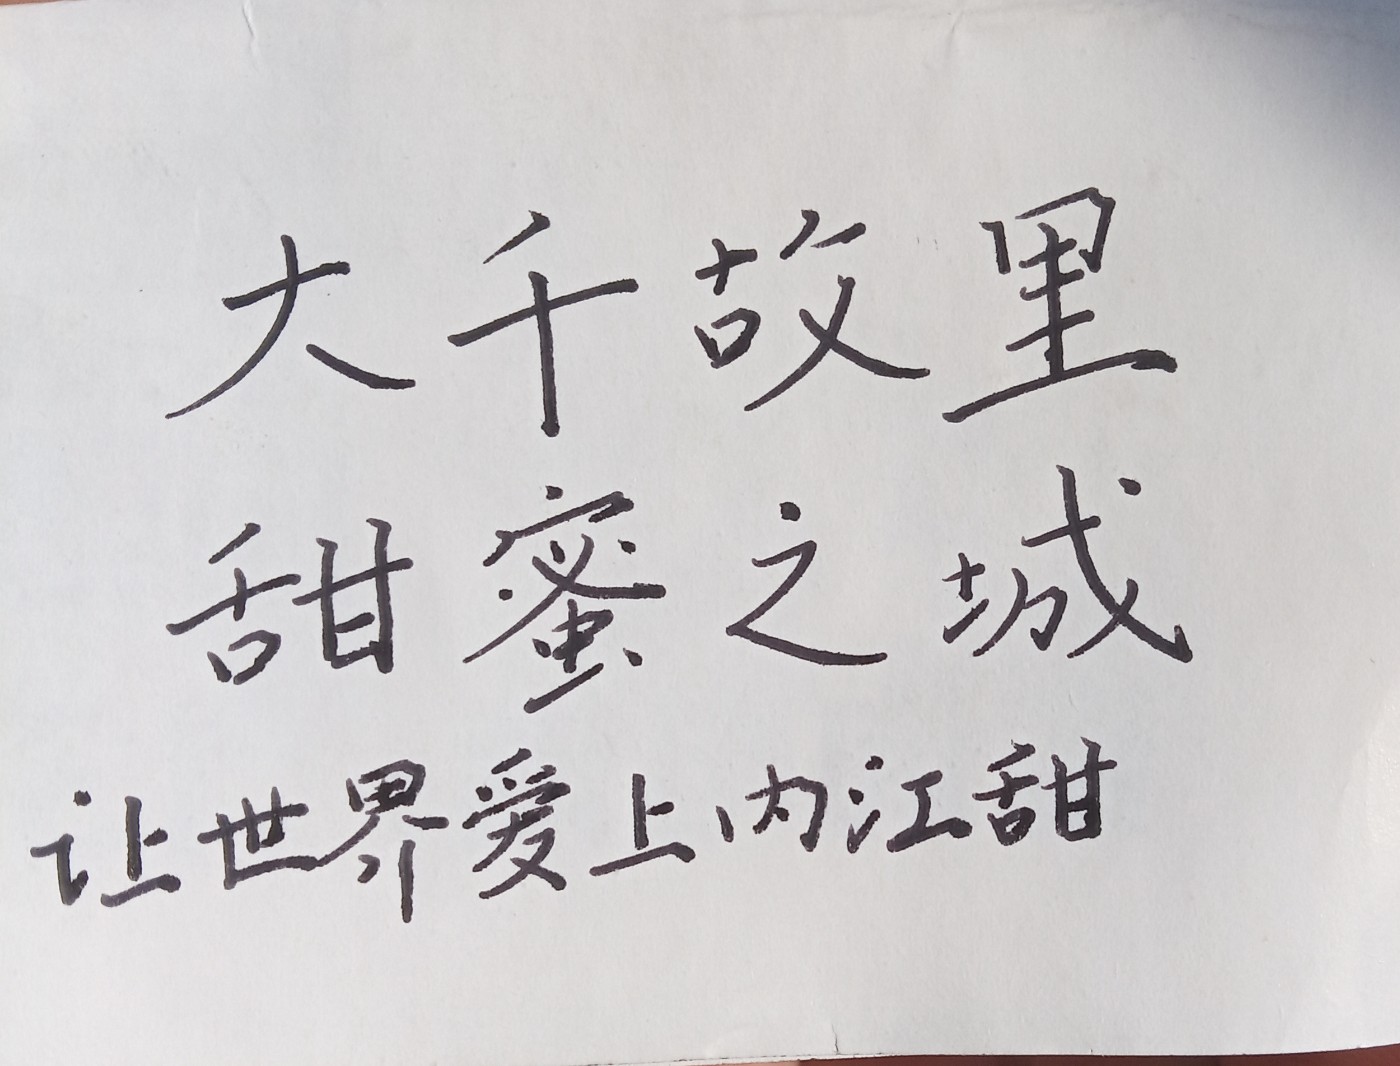 大千故里
甜蜜之城
让世界爱上内江甜